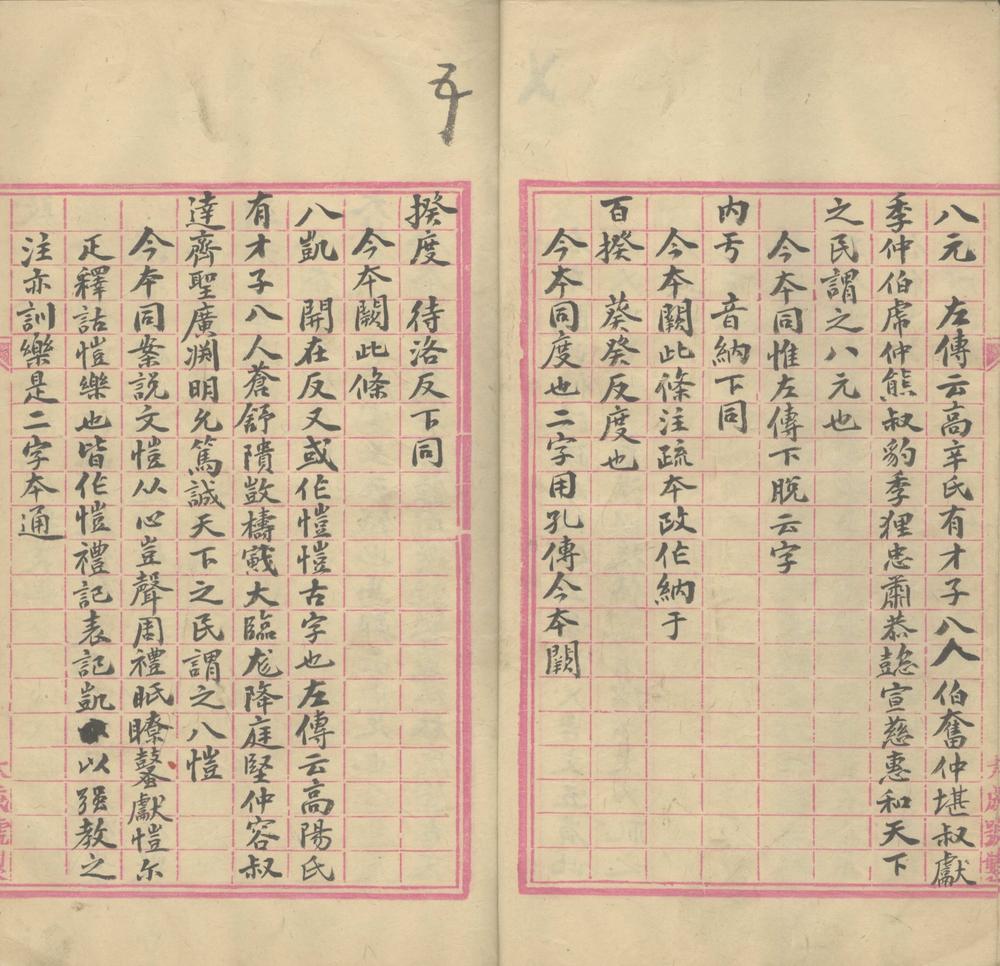 八元　左傳云高辛氏有才子八人伯奮仲堪叔獻
季仲伯虎仲熊叔豹季狸忠肅恭懿宣慈惠和天下
之民謂之八元也
今本同惟左傳下脫云字
内亐　音納下同
今本闕此條注疏本政作納于
百揆　葵癸反度也
今本同度也二字用孔傳今本闕
揆度　待洛反下同
今本闕此條
八凱　開在反又或作愷愷古字也左傳云高陽氏
有才子八人蒼舒隤敳檮戭大臨尨降庭堅仲容叔
達齊聖廣渊明允篤誠天下之民謂之八愷
今本同案說文愷从心豈聲周禮眂瞭鼜獻愷尔
疋釋詁愷樂也皆作愷禮記表記凱以强教之
注亦訓樂是二字本通